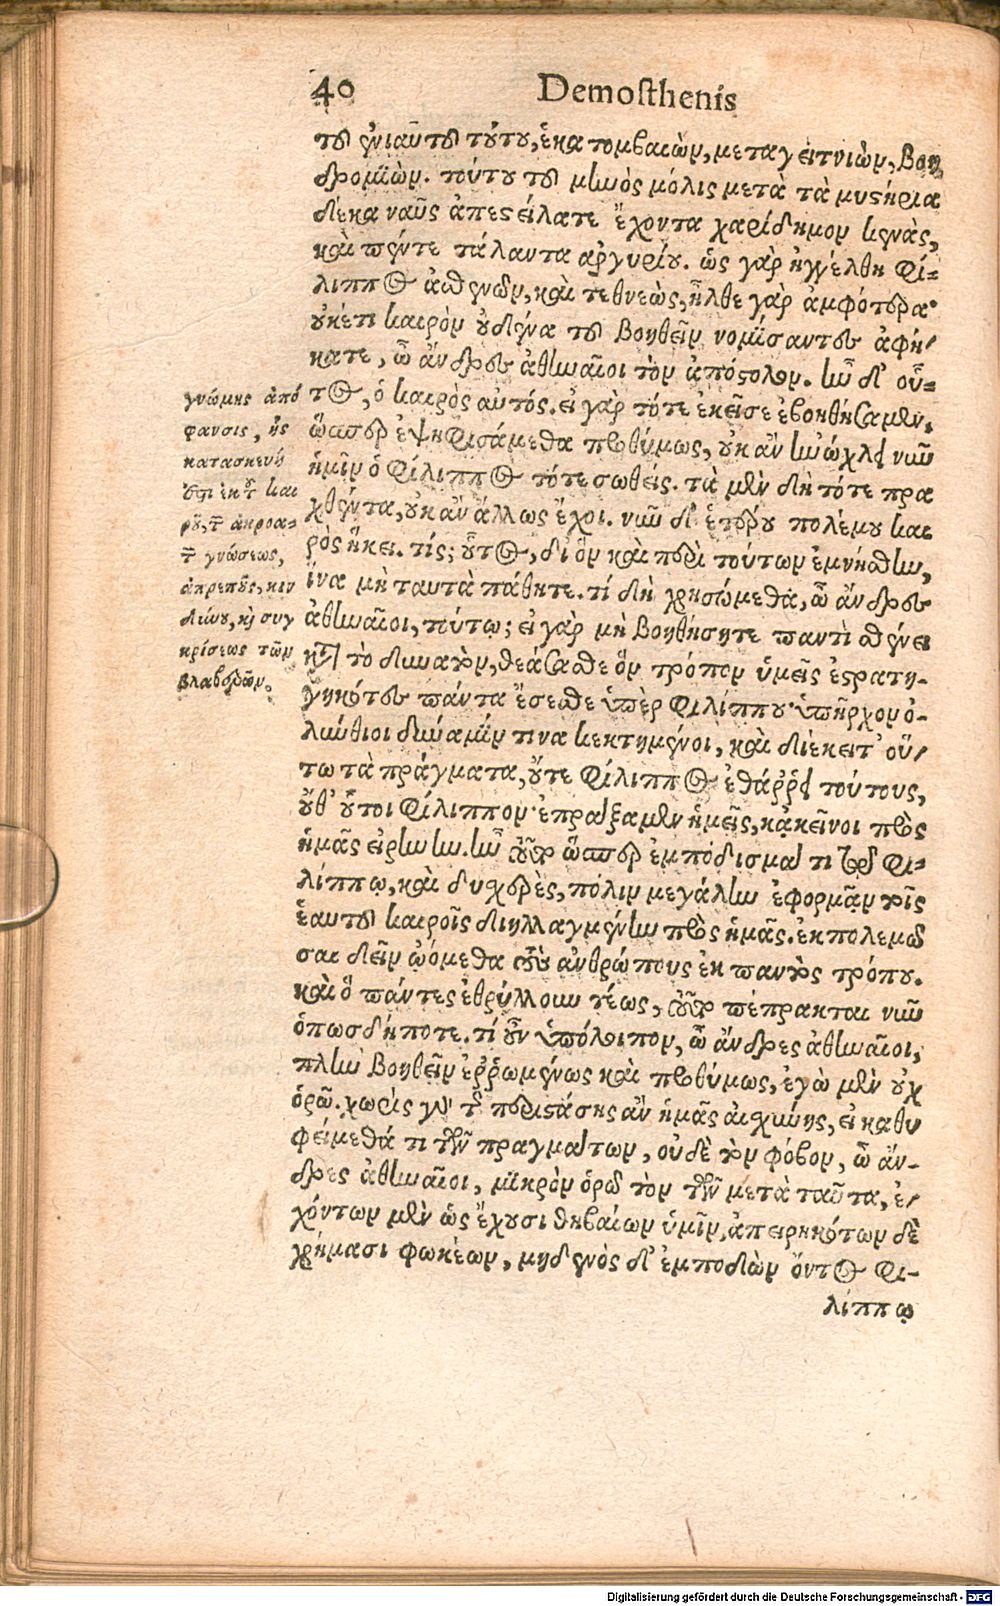 40 Demosthenis
τοῦ ἐνιαυτοῦ τούτου, ἑκατομβαιὼν, μεταγειτνιὼν, βοη
δρομιὼν. τούτου τοῦ μηνὸς μόλις μετὰ τὰ μυστήρια
δέκα ναῦς ἀπεστείλατε ἔχοντα χαρίδημον κενὰς,
καὶ πέντε τάλαντα ἀργυρίου. ὡς γὰρ ἠγγέλθη φί-
λιππος ἀσθενῶν, καὶ τεθνεὼς, ἦλθε γὰρ ἀμφότερα·
οὐκέτι καιρὸν οὐδένα τοῦ βοηθεῖν νομίσαντες ἀφή-
κατε, ὦ ἄνδρες ἀθηναῖοι τὸν ἀπόστολον. ἦν δ' οὗ-
τος, ὁ καιρὸς αὐτός. εἰ γὰρ τότε ἐκεῖσε ἐβοηθήσαμεν,
ὥσπερ ἐψηφισάμεθα προθύμως, οὐκ ἂν ἠνώχλει νῦν
ἡμῖν ὁ φίλιππος τότε σωθείς. τὰ μὲν δὴ τότε πρα
χθέντα, οὐκ ἂν ἄλλως ἔχοι. νῦν δ' ἑτέρου πολέμου και
ρὸς ἥκει. τίς; οὗτος, δι' ὃν καὶ περὶ τούτων ἐμνήσθην,
ἵνα μὴ ταυτὰ πάθητε. τί δὴ χρησώμεθα, ὦ ἄνδρες
ἀθηναῖοι, τούτῳ; εἰ γὰρ μὴ βοηθήσητε παντὶ σθένει
κατὰ τὸ δυνατὸν, θεάσασθε ὃν τρόπον ὑμεῖς ἐστρατη-
γηκότες πάντα ἔσεσθε ὑπὲρ φιλίππου· ὑπῆρχον ὀ-
λύνθιοι δύναμίν τινα κεκτημένοι, καὶ διέκειτ' οὕ-
τω τὰ πράγματα, οὔτε φίλιππος ἐθάρρει τούτους,
οὔθ' οὗτοι φίλιππον· ἐπράξαμεν ἡμεῖς, κἀκεῖνοι πρὸς
ἡμᾶς εἰρήνην. ἦν τοῦτο ὥσπερ ἐμπόδισμά τι τῷ φι-
λίππῳ, καὶ δυσχερὲς, πόλιν μεγάλην ἐφορμᾷν τοῖς
ἑαυτοῦ καιροῖς διηλλαγμένην πρὸς ἡμᾶς. ἐκπολεμῶ
σαι δεῖν ᾠόμεθα τοὺς ἀνθρώπους ἐκ παντὸς τρόπου.
καὶ ὃ πάντες ἐθρύλλουν τέως, τοῦτο πέπρακται νῦν
ὁπωσδήποτε. τί οὖν ὑπόλοιπον, ὦ ἄνδρες ἀθηναῖοι,
πλὴν βοηθεῖν ἐρρωμένως καὶ προθύμως, ἐγὼ μὲν οὐχ
ὁρῶ. χωρὶς γὰρ τῆς περιστάσης ἂν ἡμᾶς αἰσχύνης, εἰ καθυ
φείμεθά τι τῶν πραγμάτων, οὐδὲ τὸν φόβον, ὦ ἄν-
δρες ἀθηναῖοι, μικρὸν ὁρῶ τὸν τῶν μετὰ ταῦτα, ἐ-
χόντων μὲν ὡς ἔχουσι θηβαίων ὑμῖν, ἀπειρηκότων δὲ
χρήμασι φωκέων, μηδενὸς δ' ἐμποδὼν ὄντος φι-
λίππῳ
γνώμης ἀπό
φανσις, ἧς
κατασκευή
ἐστι ἐκ τοῦ και
ροῦ, τῆς ἀκροα-
τ γνώσεως,
ἀπρεποῦς, κιν
δύνου, καὶ συγ
κρίσεως τῶν
βλαβερῶν.
Digitalisierung gefördert durch die Deutsche Forschungsgemeinschaft - DFG